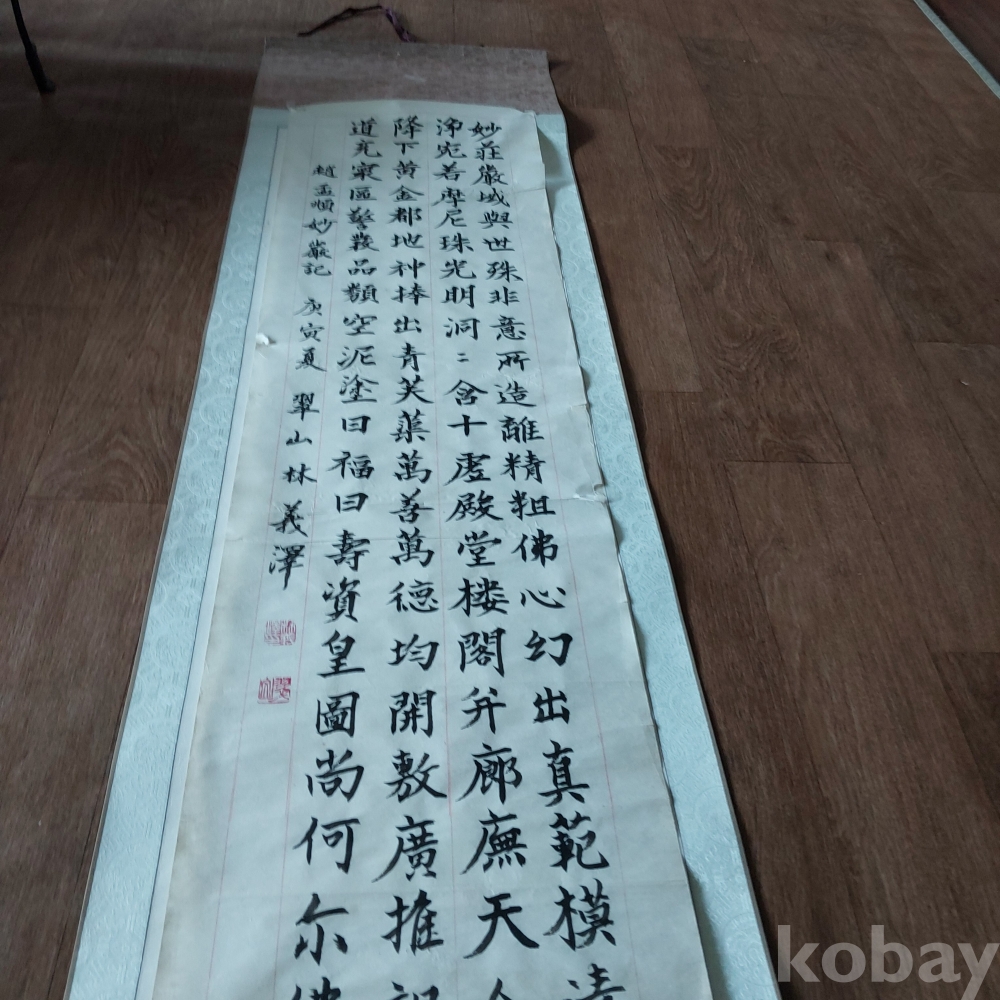 妙莊嚴域與世殊非意所造離精粗佛心幻出真範模清
淨宛若摩尼珠光明洞〻含十虛殿堂楼閣并廊廡天人
降下黃金都地神捧出青芙蕖萬善萬德均開敷廣推
道充寰區警發品類空泥塗曰福曰壽資皇圖尚何尔佛
趙孟頫妙嚴記 庚寅夏 翠山 林義澤
kobay